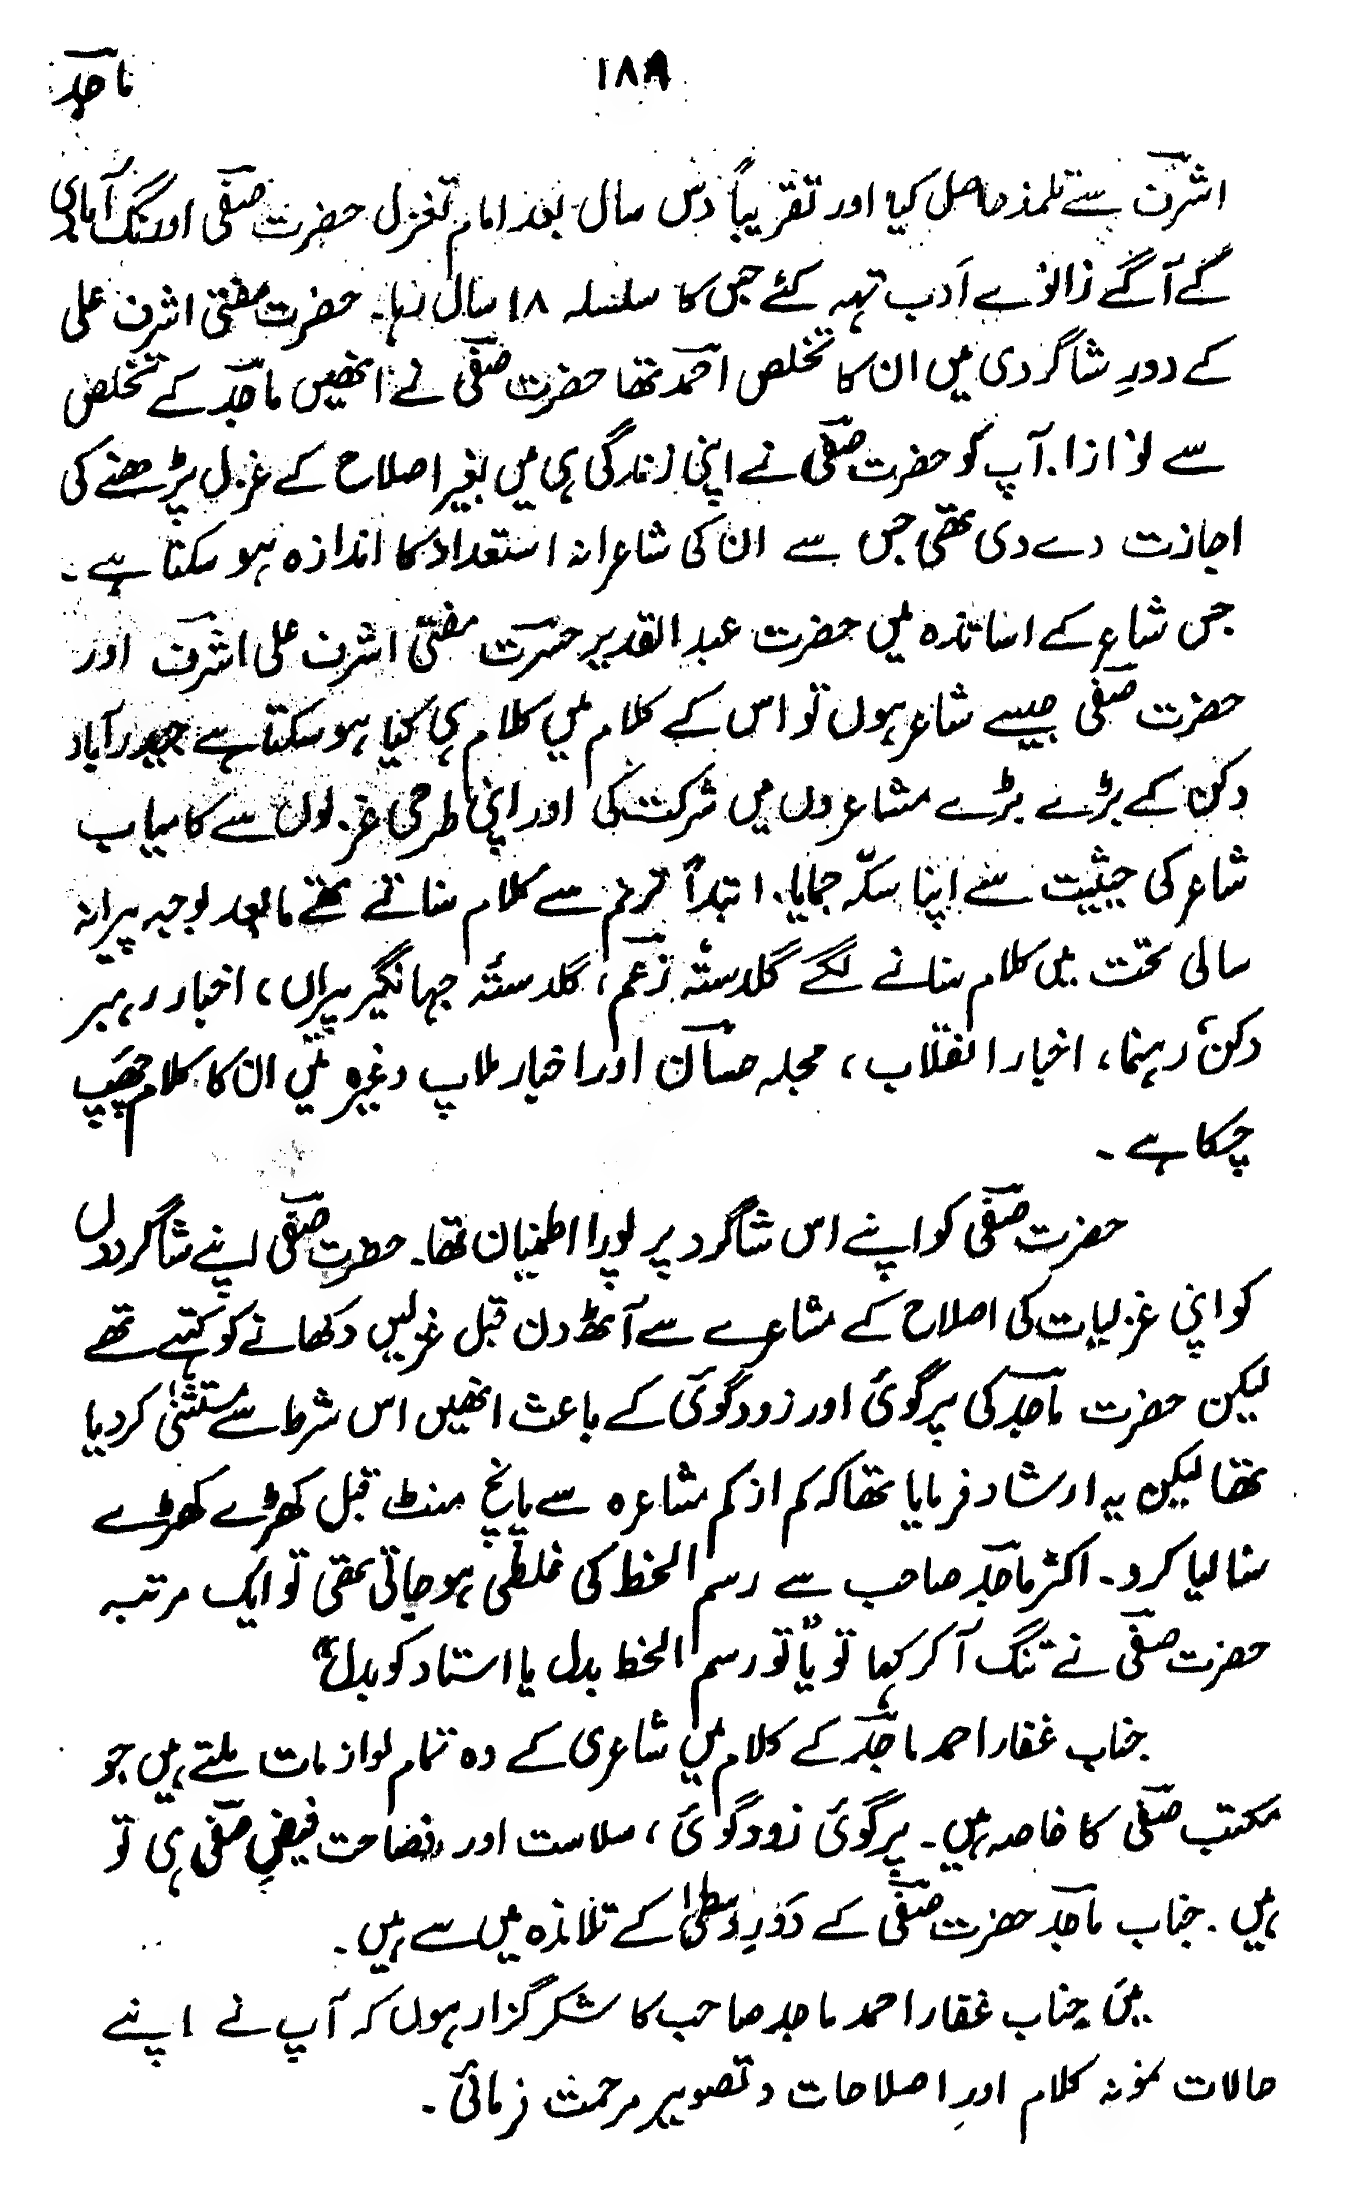 ماجدؔ
۱۸۹
اشرفؔ سے تلمذ حاصل کیا اور تقریباً دس سال بعد امام تغزل حضرت صفیؔ اورنگ آبادی
کے آگے زانوے اَدب تہہ کئے جس کا سلسلہ ۱۸ سال رہا۔ حضرت مفتی اشرف علی
کے دورِ شاگردی میں ان کا تخلص احمدؔ تھا حضرت صفیؔ نے انھیں ماجدؔ کے تخلص
سے نوازا۔ آپ کو حضرت صفیؔ نے اپنی زندگی ہی میں بغیر اصلاح کے غزل پڑھنے کی
اجازت دے دی تھی جس سے ان کی شاعرانہ استعداد کا اندازہ ہو سکتا ہے۔
جس شاعر کے اساتذہ میں حضرت عبدالقدیر حسرتؔ مفتی اشرف علی اشرفؔ اور
حضرت صفیؔ جیسے شاعر ہوں تو اس کے کلام میں کلام ہی کیا ہو سکتا ہے حیدرآباد
دکن کے بڑے بڑے مشاعروں میں شرکت کی اور اپنی طرحی غزلوں سے کامیاب
شاعر کی حیثیت سے اپنا سکّہ جمایا۔ ابتدأً ترنم سے کلام سناتے تھے مابعد بوجہ پیرانہ
سالی تحت میں کلام سنانے لگے گلدستۂ زعمؔ، گلدستۂ جہانگیر پیراں، اخبار رہبر
دکن، رہنما، اخبار انقلاب، مجلہ حسانؔ اور اخبار ملاپ وغیرہ میں ان کا کلام چھپ
چکا ہے۔
حضرت صفیؔ کو اپنے اس شاگرد پر پورا اطمینان تھا۔ حضرت صفیؔ اپنے شاگردوں
کو اپنی غزلیات کی اصلاح کے مشاعرے سے آٹھ دن قبل غزلیں دکھانے کو کہتے تھے
لیکن حضرت ماجدؔ کی پرگوئی اور زودگوئی کے باعث انھیں اس شرط سے مستثنیٰ کردیا
تھا لیکن یہ ارشاد فرمایا تھا کہ کم از کم مشاعرہ سے پانچ منٹ قبل کھڑے کھڑے
سنا لیا کرو۔ اکثر ماجدؔ صاحب سے رسم الخط کی غلطی ہو جاتی تھی تو ایک مرتبہ
حضرت صفیؔ نے تنگ آکر کہا تو "یا تو رسم الخط بدل یا استاد کو بدل"
جناب غفار احمد ماجدؔ کے کلام میں شاعری کے وہ تمام لوازمات ملتے ہیں جو
مکتب صفیؔ کا خاصہ ہیں۔ پرگوئی زودگوئی، سلاست اور فصاحت فیضِ صفیؔ ہی تو
ہیں۔ جناب ماجدؔ حضرت صفیؔ کے دَورِ وسطیٰ کے تلامذہ میں سے ہیں۔
میں جناب غفار احمد ماجد صاحب کا شکر گزار ہوں کہ آپ نے اپنے
حالات نمونہ کلام اور اصلاحات و تصویر مرحمت فرمائی۔